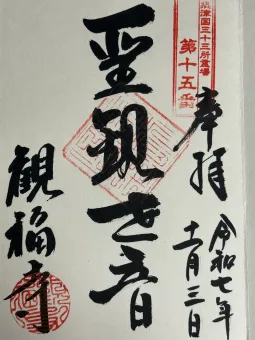 奉拝
令和七年
十一月三日
美津国三十三所霊場
第十五番
聖観世音
観福寺